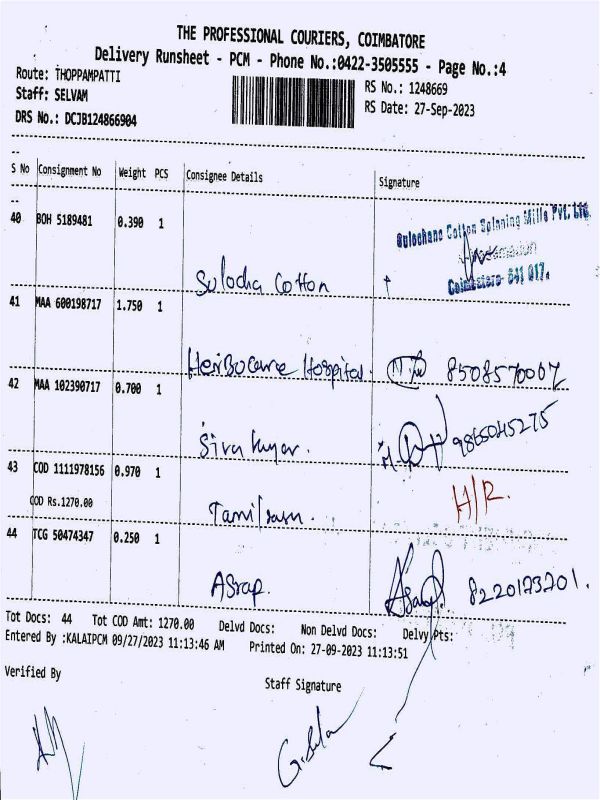 THE PROFESSIONAL COURIERS, COIMBATORE
Delivery Runsheet - PCM - Phone No.:0422-3505555 - Page No.:4
Route: THOPPAMPATTI
RS No.: 1248669
Staff: SELVAM
RS Date: 27-Sep-2023
DRS No.: DCJB124866904
S No Consignment No Weight PCS Consignee Details Signature
40 BOH 5189481 0.390 1
Sulochana Cotton Spinning Mills Pvt. Ltd.
Coimbatore- 641 017.
Sulocha Cotton
41 MAA 600198717 1.750 1
Herbocare Hospital. 8508570007
42 MAA 102390717 0.700 1
Siva kumar. 9865045275
43 COD 1111978156 0.970 1
COD Rs.1270.00
H/R.
Tamilrasu.
44 TCG 50474347 0.250 1
Asrap. 8220173701.
Tot Docs: 44 Tot COD Amt: 1270.00 Delvd Docs: Non Delvd Docs: Delvy Pts:
Entered By :KALAIPCM 09/27/2023 11:13:46 AM Printed On: 27-09-2023 11:13:51
Verified By
Staff Signature